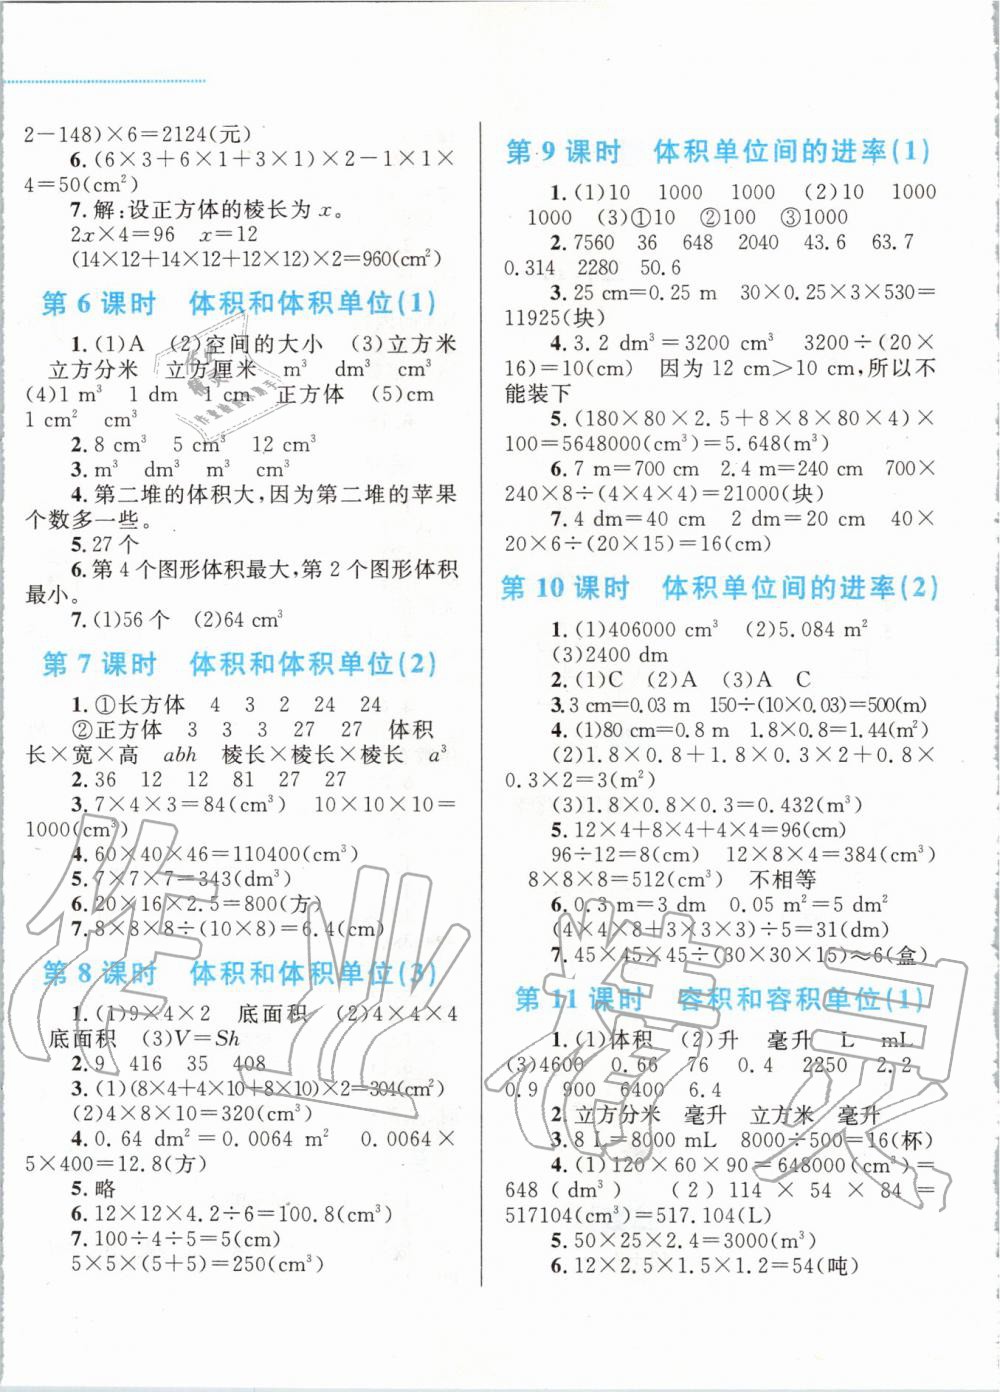 2－148)×6＝2124(元)
6.(6×3＋6×1＋3×1)×2－1×1×
4＝50(cm²)
7.解:设正方体的棱长为 x。
2x×4＝96　x＝12
(14×12＋14×12＋12×12)×2＝960(cm²)
第 6 课时　体积和体积单位(1)
1.(1)A　(2)空间的大小　(3)立方米
立方分米　立方厘米　m³　dm³　cm³
(4)1 m³　1 dm　1 cm　正方体　(5)cm
1 cm²　cm³
2.8 cm³　5 cm³　12 cm³
3.m³　dm³　m³　cm³
4.第二堆的体积大,因为第二堆的苹果
个数多一些。
5.27 个
6.第 4 个图形体积最大,第 2 个图形体积
最小。
7.(1)56 个　(2)64 cm³
第 7 课时　体积和体积单位(2)
1.①长方体　4　3　2　24　24
②正方体　3　3　3　27　27　体积
长×宽×高　abh　棱长×棱长×棱长　a³
2.36　12　12　81　27　27
3.7×4×3＝84(cm³)　10×10×10＝
1000(cm³)
4.60×40×46＝110400(cm³)
5.7×7×7＝343(dm³)
6.20×16×2.5＝800(方)
7.8×8×8÷(10×8)＝6.4(cm)
第 8 课时　体积和体积单位(3)
1.(1)9×4×2　底面积　(2)4×4×4
底面积　(3)V＝Sh
2.9　416　35　408
3.(1)(8×4＋4×10＋8×10)×2＝304(cm²)
(2)4×8×10＝320(cm³)
4.0.64 dm²＝0.0064 m²　0.0064×
5×400＝12.8(方)
5.略
6.12×12×4.2÷6＝100.8(cm³)
7.100÷4÷5＝5(cm)
5×5×(5＋5)＝250(cm³)
第 9 课时　体积单位间的进率(1)
1.(1)10　1000　1000　(2)10　1000
1000　(3)①10　②100　③1000
2.7560　36　648　2040　43.6　63.7
0.314　2280　50.6
3.25 cm＝0.25 m　30×0.25×3×530＝
11925(块)
4.3.2 dm³＝3200 cm³　3200÷(20×
16)＝10(cm)　因为 12 cm＞10 cm,所以不
能装下
5.(180×80×2.5＋8×8×80×4)×
100＝5648000(cm³)＝5.648(m³)
6.7 m＝700 cm　2.4 m＝240 cm　700×
240×8÷(4×4×4)＝21000(块)
7.4 dm＝40 cm　2 dm＝20 cm　40×
20×6÷(20×15)＝16(cm)
第 10 课时　体积单位间的进率(2)
1.(1)406000 cm³　(2)5.084 m²
(3)2400 dm
2.(1)C　(2)A　(3)A　C
3.3 cm＝0.03 m　150÷(10×0.03)＝500(m)
4.(1)80 cm＝0.8 m　1.8×0.8＝1.44(m²)
(2)1.8×0.8＋1.8×0.3×2＋0.8×
0.3×2＝3(m²)
(3)1.8×0.8×0.3＝0.432(m³)
5.12×4＋8×4＋4×4＝96(cm)
96÷12＝8(cm)　12×8×4＝384(cm³)
8×8×8＝512(cm³)　不相等
6.0.3 m＝3 dm　0.05 m²＝5 dm²
(4×4×8＋3×3×3)÷5＝31(dm)
7.45×45×45÷(30×30×15)≈6(盒)
第 11 课时　容积和容积单位(1)
1.(1)体积　(2)升　毫升　L　mL
(3)4600　0.66　76　0.4　2250　2.2
0.9　900　6400　6.4
2.立方分米　毫升　立方米　毫升
3.8 L＝8000 mL　8000÷500＝16(杯)
4.(1)120×60×90＝648000(cm³)＝
648(dm³)　(2)114×54×84＝
517104(cm³)＝517.104(L)
5.50×25×2.4＝3000(m³)
6.12×2.5×1.5×1.2＝54(吨)
作业精灵